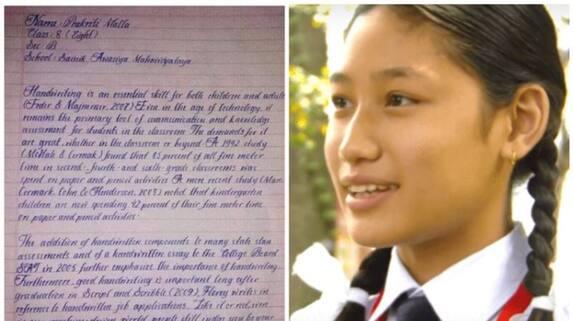 Name : Prakriti Malla
Class : 8 (Eight)
Sec : B
School : Sainik Awasiya Mahavidyalaya
Handwriting is an essential skill for both children and adults
(Feder & Majnemer, 2007) Even in the age of technology, it
remains the primary tool of communication and knowledge
assessment for students in the classroom The demands for it
are great, whether in the classroom or beyond A 1992 study
(McHale & Cermak) found that 85 percent of all fine motor
time in second-, fourth- and sixth-grade classrooms was
spent on paper and pencil activities A more recent study (Marr,
Cermark, Cohn & Henderson, 2003) noted that kindergarten
children are now spending 42 percent of their fine motor time
on paper and pencil activities.
The addition of handwritten components to many state stan
assessments and of a handwritten essay to the College Board
SAT in 2005 further emphasis the importance of handwriting
Furthermore, good handwriting is important long after
graduation in Script and Scribble (2009), Florey writes in
reference to handwritten job applications Like it or not, even
in our machine-driven world, people still judge you by your